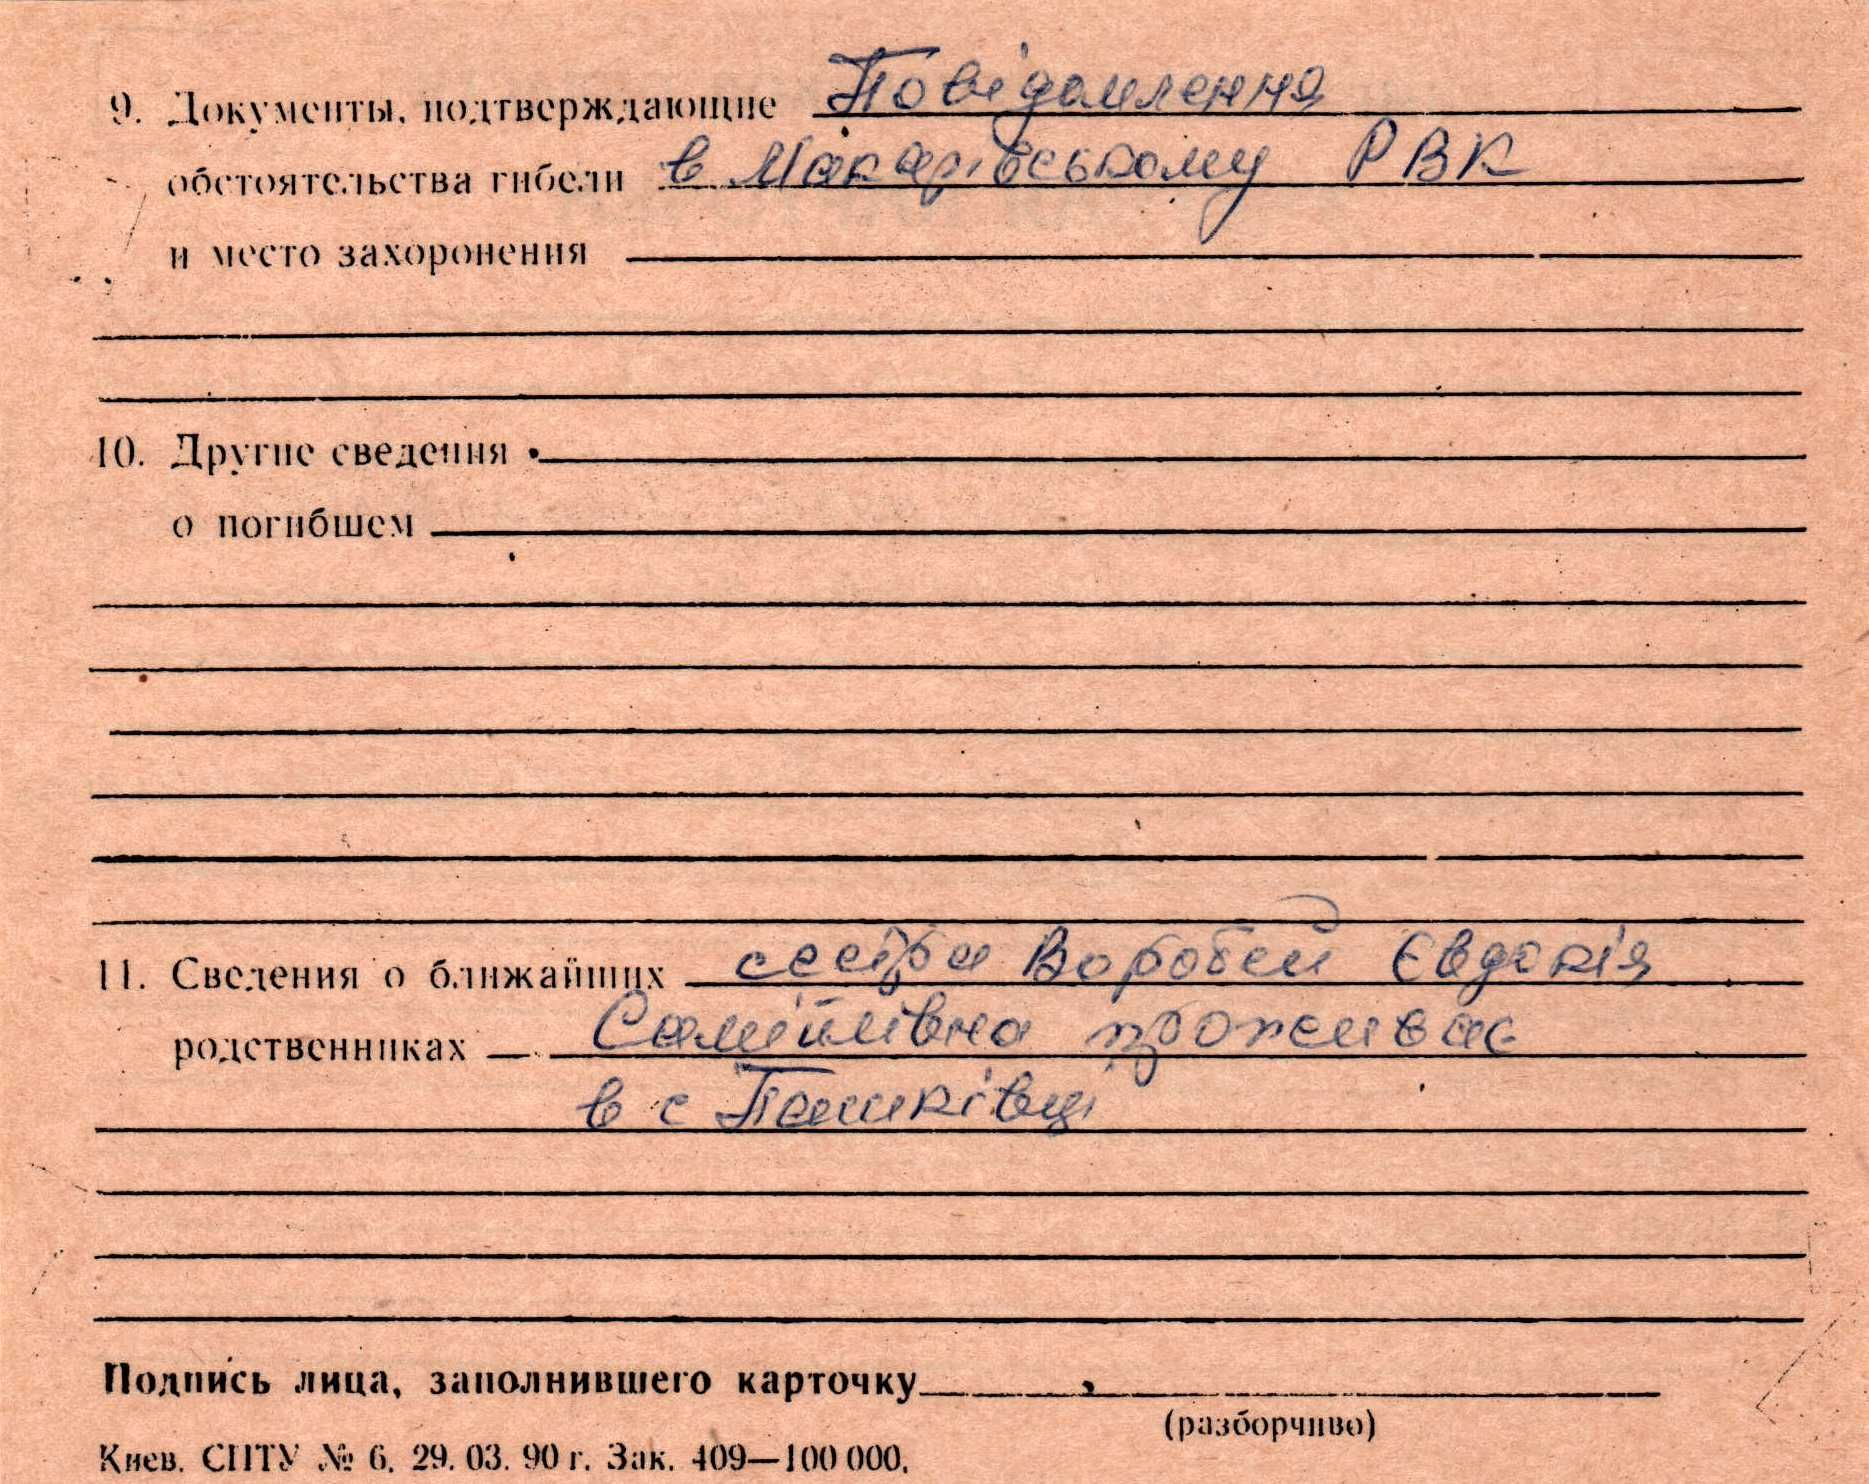 9. Документы, подтверждающие Повідомлення
обстоятельства гибели в Макарівському РВК
и место захоронения
10. Другие сведения
о погибшем
11. Сведения о ближайших сестра Воробей Євдокія
родственниках Самійлівна проживає
в с Пашківці
Подпись лица, заполнившего карточку
(разборчиво)
Киев. СПТУ № 6. 29. 03. 90 г. Зак. 409—100 000.